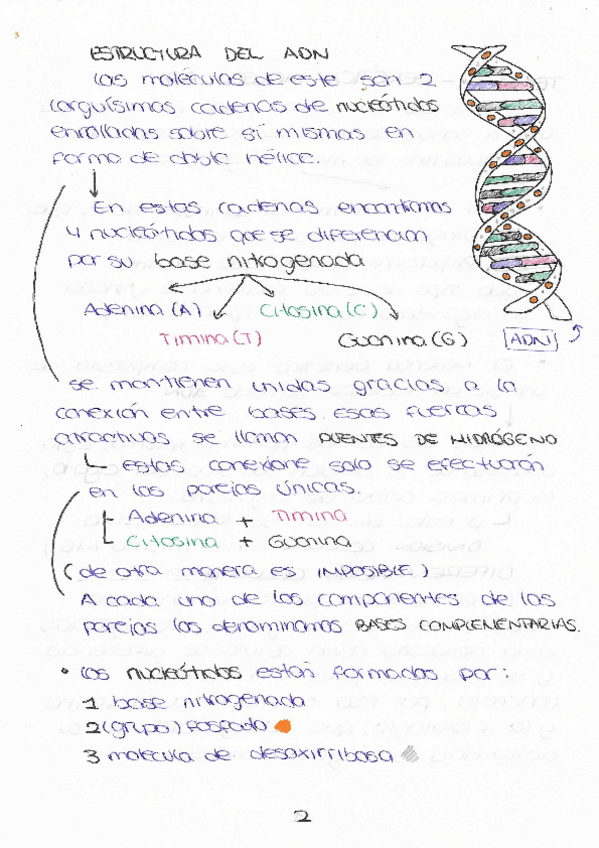 ESTRUCTURA DEL ADN
Las moléculas de este son 2
larguísimas cadenas de nucleótidos
enrolladas sobre sí mismas en
forma de doble hélice.
En estas cadenas encontramos
4 nucleótidos que se diferencian
por su base nitrogenada
Adenina (A) Citosina (C)
Timina (T) Guanina (G)
ADN
se mantienen unidas gracias a la
conexión entre bases. esas fuerzas
atractivas se llaman PUENTES DE HIDRÓGENO
estas conexione solo se efectuarán
en las parejas únicas.
Adenina + Timina
Citosina + Guanina
(de otra manera es IMPOSIBLE)
A cada uno de los componentes de las
parejas los denominamos BASES COMPLEMENTARIAS.
• Los nucleótidos están formados por:
1 base nitrogenada
2 (grupo) fosfado
3 molecula de desoxirribosa
2